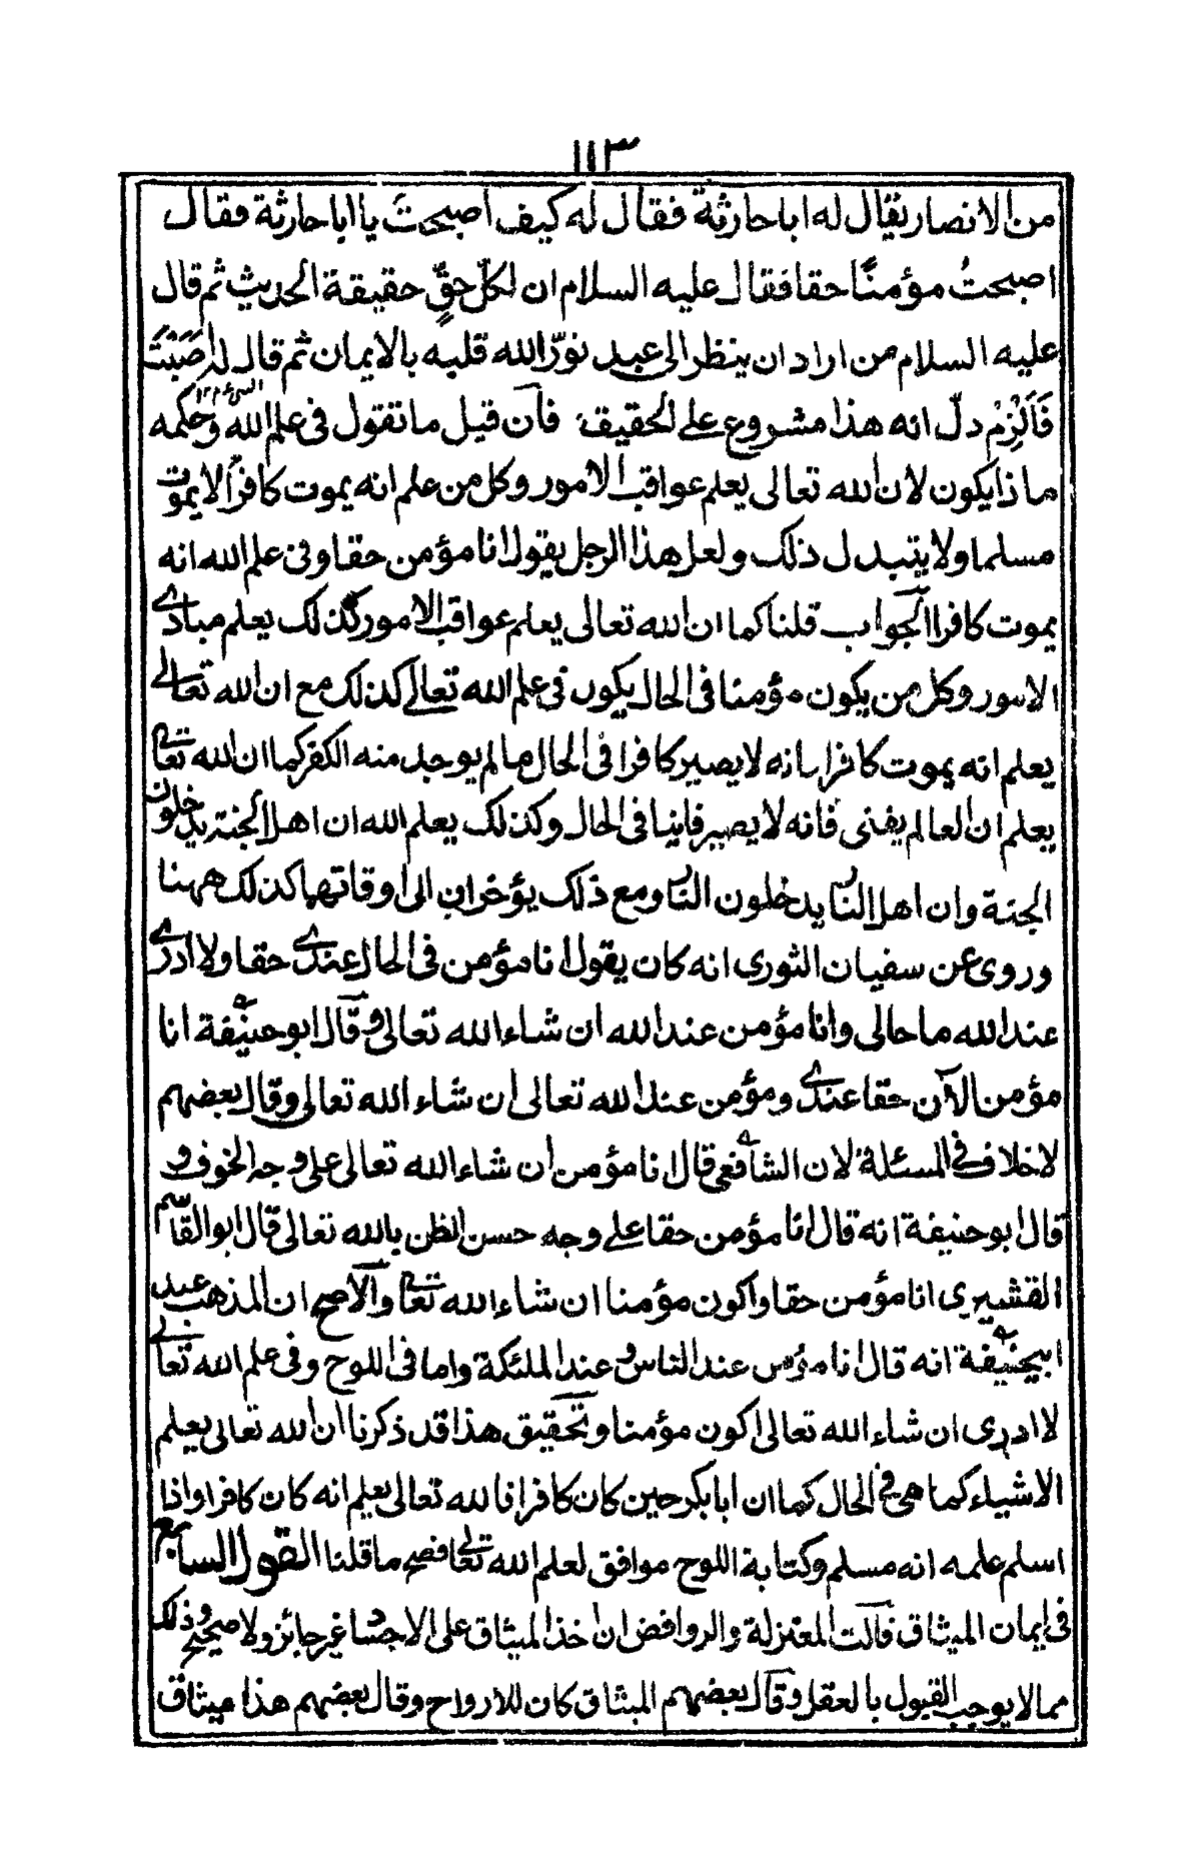 ١١٣
من الانصار يقال له ابا حارثة فقال له كيف اصبحتَ يا ابا حارثة فقال
اصبحتُ مؤمنًا حقا فقال عليه السلام ان لكلّ حقٍّ حقيقة الحديث ثم قال
عليه السلام من اراد ان ينظر الى عبد نوّر الله قلبه بالايمان ثم قال له اَصَبْتَ
فَاَلْزِمْ دلّ انه هذا مشروع على الحقيقة فآن قيل ما تقول فى علم الله وحكمه
ماذا يكون لان الله تعالى يعلم عواقب الامور وكل من علم انه يموت كافرا لا يموت
مسلما ولا يتبدل ذلك ولعل هذا الرجل يقول انا مؤمن حقا وفى علم الله انه
يموت كافرا الجواب قلنا كما ان الله تعالى يعلم عواقب الامور كذلك يعلم مبادى
الامور وكل من يكون مؤمنا فى الحال يكون فى علم الله تعالى كذلك مع ان الله تعالى
يعلم انه يموت كافرا انه لا يصير كافرا فى الحال ما لم يوجد منه الكفر كما ان الله تعا
يعلم ان العالم يفنى فانه لا يصير فانيا فى الحال وكذلك يعلم الله ان اهل الجنة يدخلون
الجنة وان اهل النار يدخلون النار ومع ذلك يؤخران الى اوقاتهما كذلك ههنا
وروى عن سفيان الثورى انه كان يقول انا مؤمن فى الحال عندى حقا ولا ادرى
عند الله ما حالى وانا مؤمن عند الله ان شاء الله تعالى وقال ابو حنيفة انا
مؤمن الآن حقا عندى ومؤمن عند الله تعالى ان شاء الله تعالى وقال بعضهم
لا خلاف فى المسئلة لان الشافعى قال انا مؤمن ان شاء الله تعالى على وجه الخوف و
قال ابو حنيفة انه قال انا مؤمن حقا على وجه حسن الظن بالله تعالى قال ابو القاسم
القشيرى انا مؤمن حقا واكون مؤمنا ان شاء الله تعا والاصح ان المذهب عند
ابيحنيفة انه قال انا مؤمن عند الناس وعند الملئكة واما فى اللوح وفى علم الله تعالى
لا ادرى ان شاء الله تعالى اكون مؤمنا وتحقيق هذا قد ذكرنا ان الله تعالى يعلم
الاشياء كما هى فى الحال كما ان ابا بكر حين كان كافرا فالله تعالى يعلم انه كان كافرا واذا
اسلم علمه انه مسلم وكتابة اللوح موافق لعلم الله تعالى فصح ما قلنا القول السابع
فى ايمان الميثاق قالت المعتزلة والروافض ان اخذ الميثاق على الاجسا غير جائز ولا صحيح وذلك
مما لا يوجب القبول بالعقل وقال بعضهم الميثاق كان للارواح وقال بعضهم هذا ميثاق